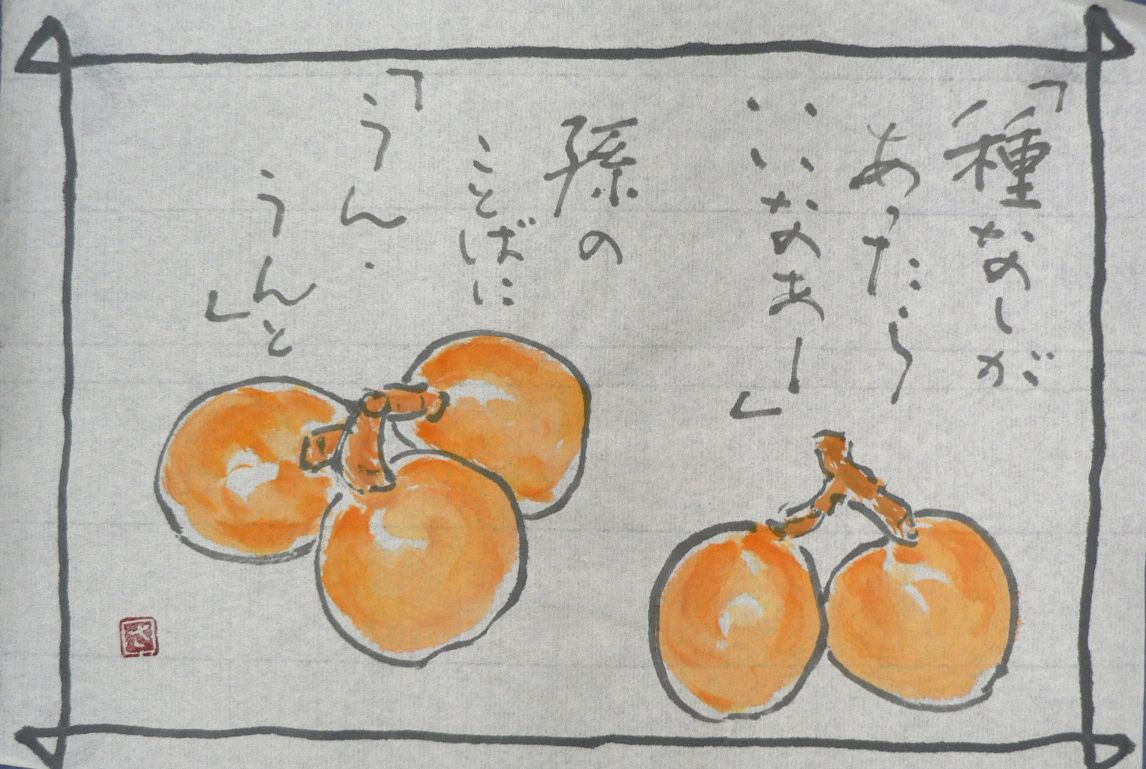 「種なしが
あったら
いいなあー」
孫の
ことばに
「うん.
うんと」
さ